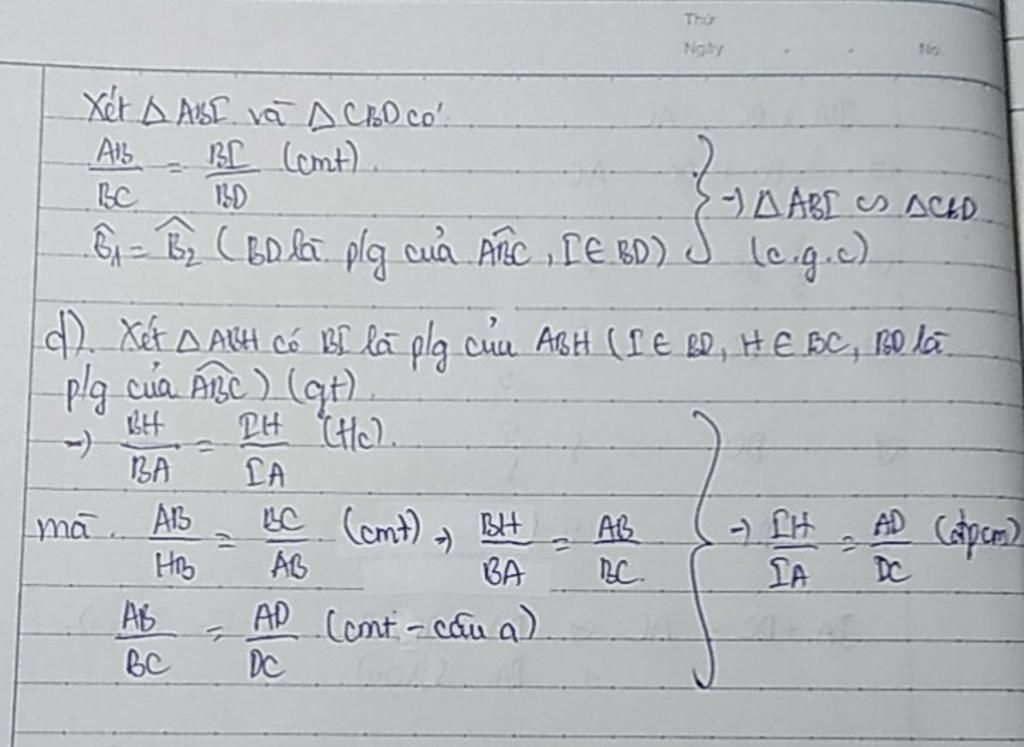 Thứ
Ngày . . No.
Xét △ ABI và △ CBD có:
AB/BC = BI/BD (cmt).
B̂₁ = B̂₂ (BD là p/g của ABC, I ∈ BD) } → △ ABI ∽ △CBD (c.g.c)
d). Xét △ ABH có BI là p/g của ABH (I ∈ BD, H ∈ BC, BD là
p/g của ABC) (gt).
→ BH/BA = IH/IA (t/c).
mà. AB/HB = BC/AB (cmt) → BH/BA = AB/BC. } → IH/IA = AD/DC (đpcm)
AB/BC = AD/DC (cmt - câu a)